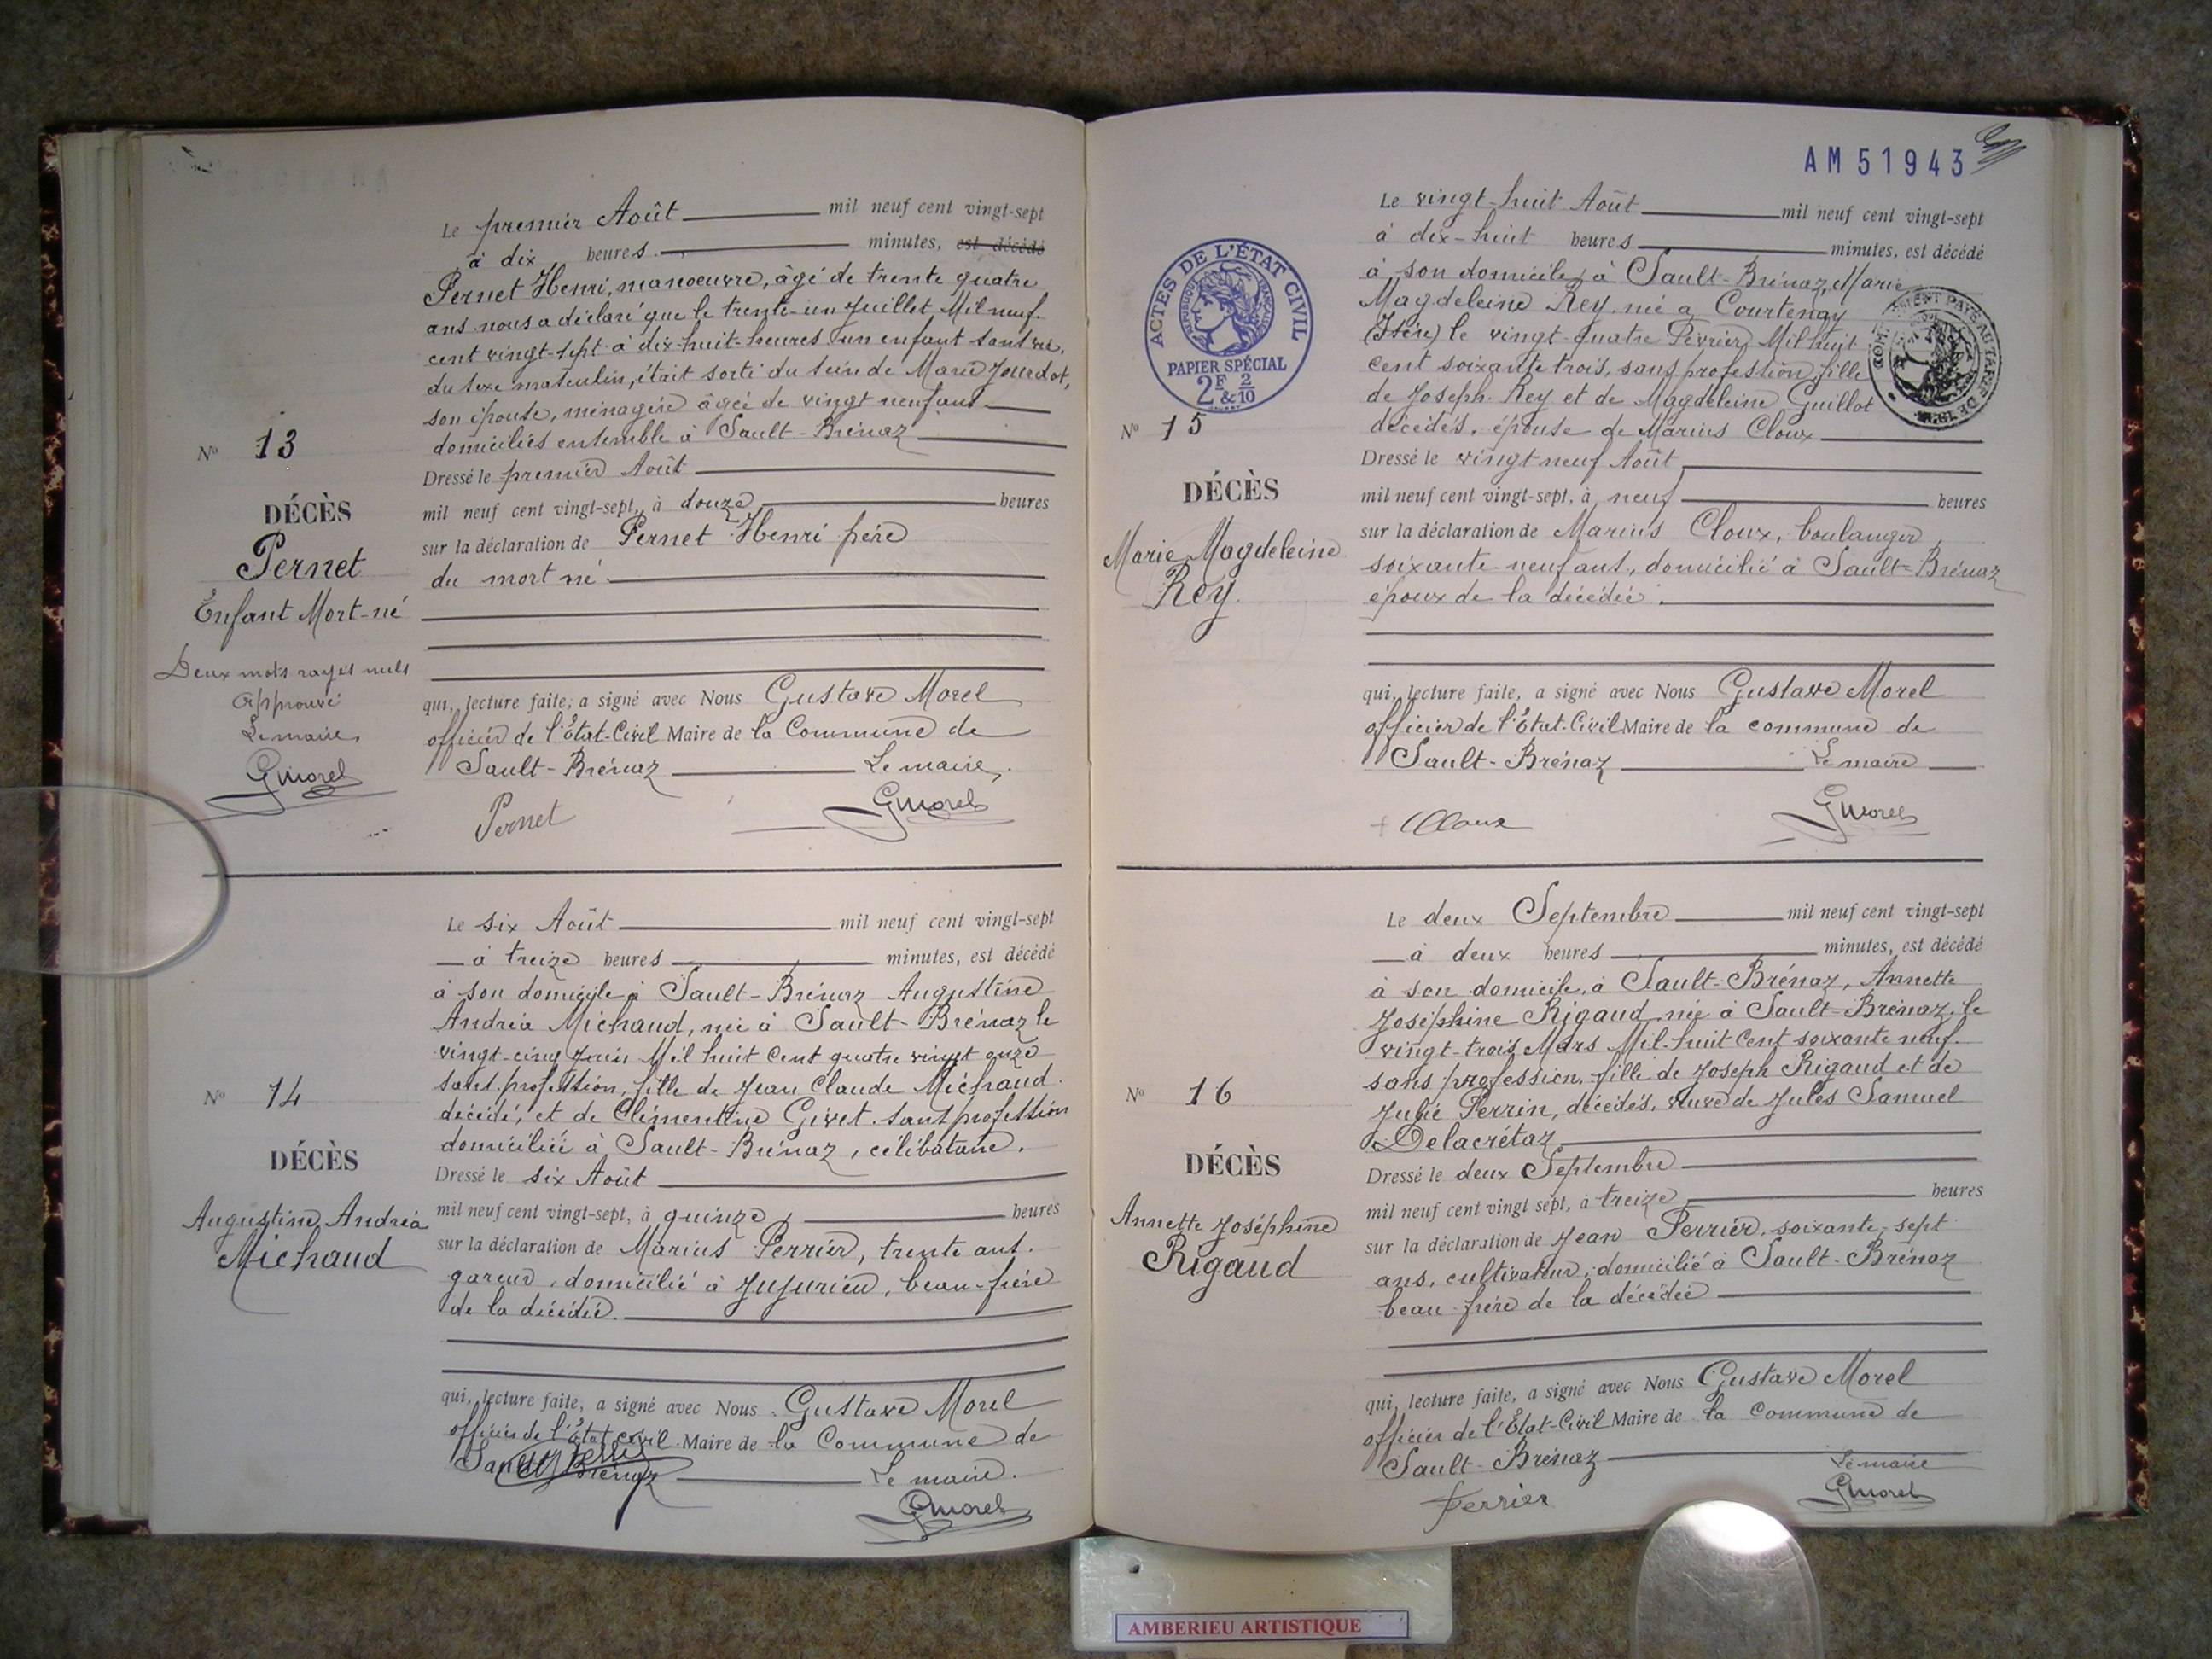 Le premier Août mil neuf cent vingt-sept
à dix heures minutes, est décédé
Pernet Henri, manoeuvre, âgé de trente quatre
ans nous a déclaré que le trente-un Juillet Mil neuf-
cent vingt-sept à dix-huit-heures un enfant sans vie,
du sexe masculin, était sorti du sein de Marie Jourdot,
son épouse, ménagère âgée de vingt neuf ans
domiciliés ensemble à Sault-Brénaz
Dressé le premier Août
mil neuf cent vingt-sept, à douze heures
sur la déclaration de Pernet Henri père
du mort né
qui, lecture faite, a signé avec Nous Gustave Morel
officier de l'État-Civil Maire de la Commune de
Sault-Brénaz Le maire,
Pernet GMorel
No 13
DÉCÈS
Pernet
Enfant Mort-né
Deux mots rayés nuls
Approuvé
Le maire,
GMorel
Le six Août mil neuf cent vingt-sept
à treize heures minutes, est décédé
à son domicile à Sault-Brénaz Augustine
Andréa Michaud, née à Sault-Brénaz le
vingt-cinq Juin Mil huit cent quatre vingt onze
sans profession, fille de Jean Claude Michaud
décédé, et de Clémentine Givet. sans profession
domiciliée à Sault-Brénaz, célibataire.
Dressé le six Août
mil neuf cent vingt-sept, à quinze heures
sur la déclaration de Marius Perrier, trente ans.
gareur, domicilié à Jujurieu, beau-frère
de la décédée.
qui, lecture faite, a signé avec Nous Gustave Morel
officier de l'État civil Maire de la Commune de
Sault Brénaz Le maire.
GMorel
No 14
DÉCÈS
Augustine Andréa
Michaud
AM 51943
Le vingt-huit Août mil neuf cent vingt-sept
à dix-huit heures minutes, est décédé
à son domicile, à Sault-Brénaz, Marie
Magdeleine Rey, née à Courtenay
(Isère) le vingt-quatre Février Mil huit
cent soixante trois, sans profession, fille
de Joseph Rey et de Magdeleine Guillot
décédés, épouse de Marius Cloux
Dressé le vingt neuf Août
mil neuf cent vingt-sept, à neuf heures
sur la déclaration de Marius Cloux, boulanger,
soixante-neuf ans, domicilié à Sault-Brénaz
époux de la décédée.
qui, lecture faite, a signé avec Nous Gustave Morel
officier de l'État-Civil Maire de la commune de
Sault-Brénaz Le maire
Cloux GMorel
ACTES DE L'ÉTAT CIVIL
RÉPUBLIQUE FRANÇAISE
PAPIER SPÉCIAL
2F & 2/10
No 15
DÉCÈS
Marie Magdeleine
Rey
Le deux Septembre mil neuf cent vingt-sept
à deux heures minutes, est décédé
à son domicile, à Sault-Brénaz, Annette
Joséphine Rigaud, née à Sault-Brénaz, le
vingt-trois Mars Mil-huit Cent soixante neuf.
sans profession, fille de Joseph Rigaud et de
Julie Perrin, décédés, veuve de Jules Samuel
Delacrétaz
Dressé le deux Septembre
mil neuf cent vingt sept, à treize heures
sur la déclaration de Jean Perrier, soixante-sept
ans, cultivateur, domicilié à Sault-Brénaz
beau-frère de la décédée
qui, lecture faite, a signé avec Nous Gustave Morel
officier de l'État-Civil Maire de la Commune de
Sault-Brénaz Le maire
Perrier GMorel
No 16
DÉCÈS
Annette Joséphine
Rigaud
AMBERIEU ARTISTIQUE